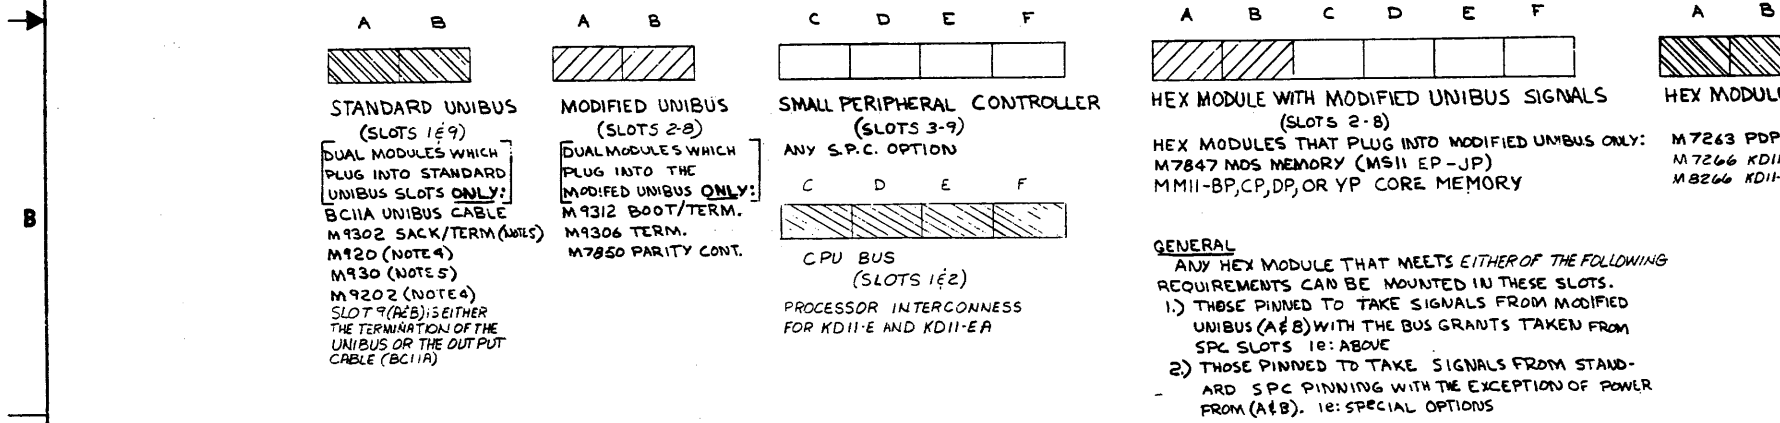 A B
STANDARD UNIBUS
(SLOTS 1&9)
DUAL MODULES WHICH
PLUG INTO STANDARD
UNIBUS SLOTS ONLY:
BC11A UNIBUS CABLE
M9302 SACK/TERM (NOTE5)
M920 (NOTE4)
M930 (NOTE5)
M9202 (NOTE4)
SLOT 9 (A&B) IS EITHER
THE TERMINATION OF THE
UNIBUS OR THE OUTPUT
CABLE (BC11A)
A B
MODIFIED UNIBUS
(SLOTS 2-8)
DUAL MODULES WHICH
PLUG INTO THE
MODIFED UNIBUS ONLY:
M9312 BOOT/TERM.
M9306 TERM.
M7850 PARITY CONT.
C D E F
SMALL PERIPHERAL CONTROLLER
(SLOTS 3-9)
ANY S.P.C. OPTION
C D E F
CPU BUS
(SLOTS 1&2)
PROCESSOR INTERCONNESS
FOR KD11-E AND KD11-EA
A B C D E F
HEX MODULE WITH MODIFIED UNIBUS SIGNALS
(SLOTS 2-8)
HEX MODULES THAT PLUG INTO MODIFIED UNIBUS ONLY:
M7847 MOS MEMORY (MS11 EP-JP)
MM11-BP,CP,DP, OR YP CORE MEMORY
GENERAL
ANY HEX MODULE THAT MEETS EITHER OF THE FOLLOWING
REQUIREMENTS CAN BE MOUNTED IN THESE SLOTS.
1.) THOSE PINNED TO TAKE SIGNALS FROM MODIFIED
UNIBUS (A&B) WITH THE BUS GRANTS TAKEN FROM
SPC SLOTS ie: ABOVE
2.) THOSE PINNED TO TAKE SIGNALS FROM STAND-
ARD SPC PINNING WITH THE EXCEPTION OF POWER
FROM (A&B). ie: SPECIAL OPTIONS
A B
HEX MODULE
M7263 PDP
M7266 KD11
M8266 KD11-
B